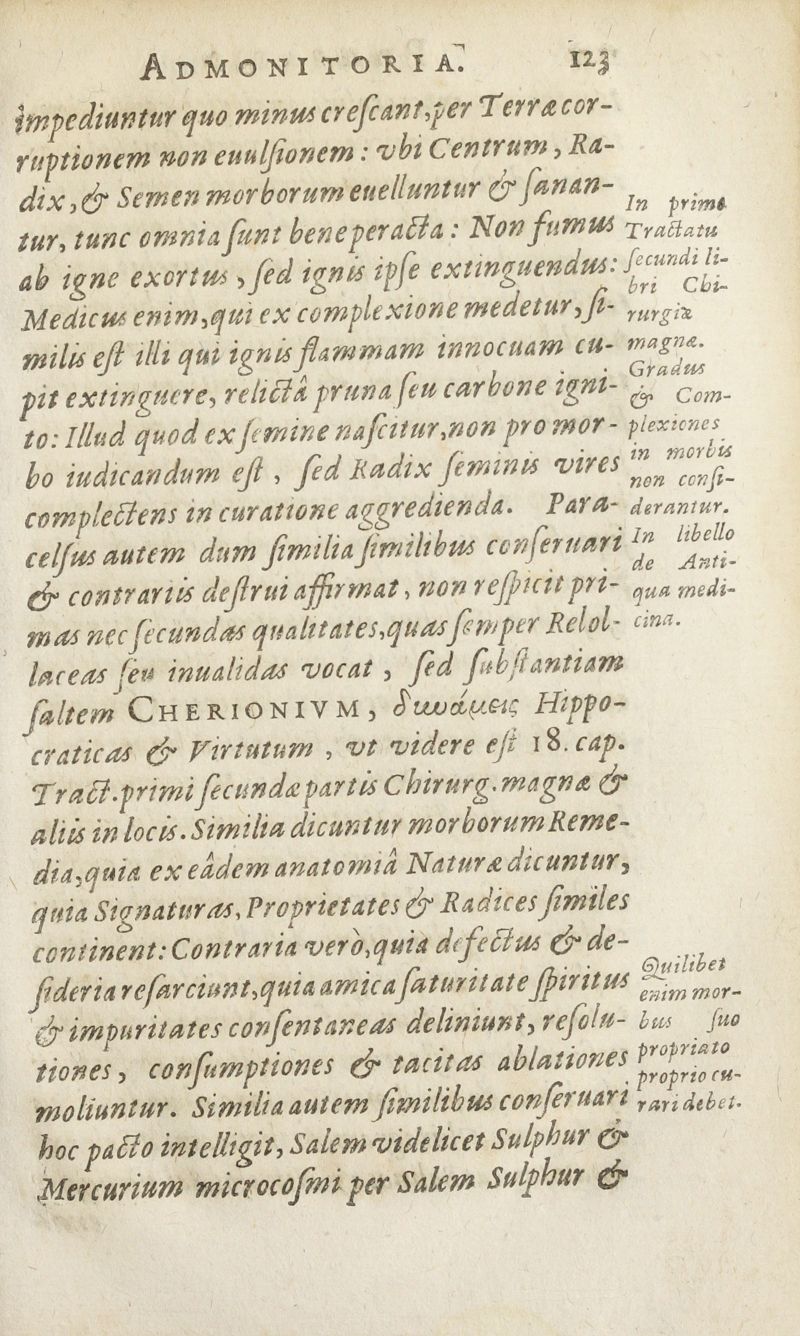 ADMONITORIA. 123
impediuntur quo minus creſcant, per Terræ cor-
ruptionem non euulſionem : vbi Centrum, Ra-
dix, & Semen morborum euelluntur & ſanan-
tur, tunc omnia ſunt bene peracta : Non fumus
ab igne exortus, ſed ignis ipſe extinguendus:
Medicus enim, qui ex complexione medetur, ſi-
milis eſt illi qui ignis flammam innocuam cu-
pit extinguere, relictâ pruna ſeu carbone igni-
to: Illud quod ex ſemine naſcitur, non pro mor-
bo iudicandum eſt, ſed Radix ſeminis vires
complectens in curatione aggredienda. Para-
celſus autem dum ſimilia ſimilibus conſeruari
& contrariis deſtrui affirmat, non reſpicit pri-
mas nec ſecundas qualitates, quas ſemper Relol-
laceas ſeu inualidas vocat, ſed ſubſtantiam
ſaltem CHERIONIVM, δυνάμεις Hippo-
craticas & Virtutum, vt videre eſt 18. cap.
Tract. primi ſecundæ partis Chirurg. magnæ &
aliis in locis. Similia dicuntur morborum Reme-
dia, quia ex eâdem anatomiâ Naturæ dicuntur,
quia Signaturas, Proprietates & Radices ſimiles
continent: Contraria verò, quia defectus & de-
ſideria reſarciunt, quia amica ſaturitate ſpiritus
& impuritates conſentaneas deliniunt, reſolu-
tiones, conſumptiones & tacitas ablationes
moliuntur. Similia autem ſimilibus conſeruari
hoc pacto intelligit, Salem videlicet Sulphur &
Mercurium microcoſmi per Salem Sulphur &
In primo
Tractatu
ſecundi li-
bri Chi-
rurgiæ
magnæ.
Gradus
& Com-
plexiones
in morbis
non conſi-
derantur.
In libello
de Anti-
qua medi-
cina.
Quilibet
enim mor-
bus ſuo
propriato
proprio cu-
rari debet.